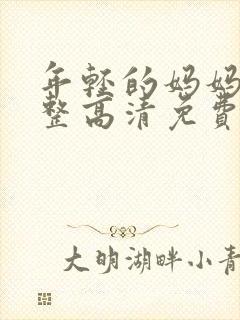 年轻的妈妈
整高清免费
大明湖畔小青